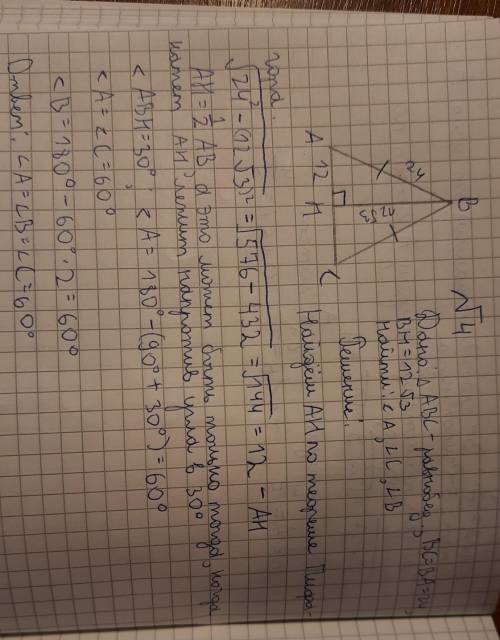 √4
Дано: △ ABC - равнобед, BC=BA=24,
BH=12√3
Найти: <A, ∠C, ∠B
Решение:
B
24
12√3
A 12 H C
Найдём AH по теореме Пифа-
гора.
√24² - (12√3)² = √576 - 432 = √144 = 12 - AH
AH = ½ AB а это может быть только тогда, когда
катет AH лежит напротив угла в 30°
< ABH = 30°, < A = 180° - (90° + 30°) = 60°
< A = ∠C = 60°
< B = 180° - 60° · 2 = 60°
Ответ: ∠A = ∠B = ∠C = 60°